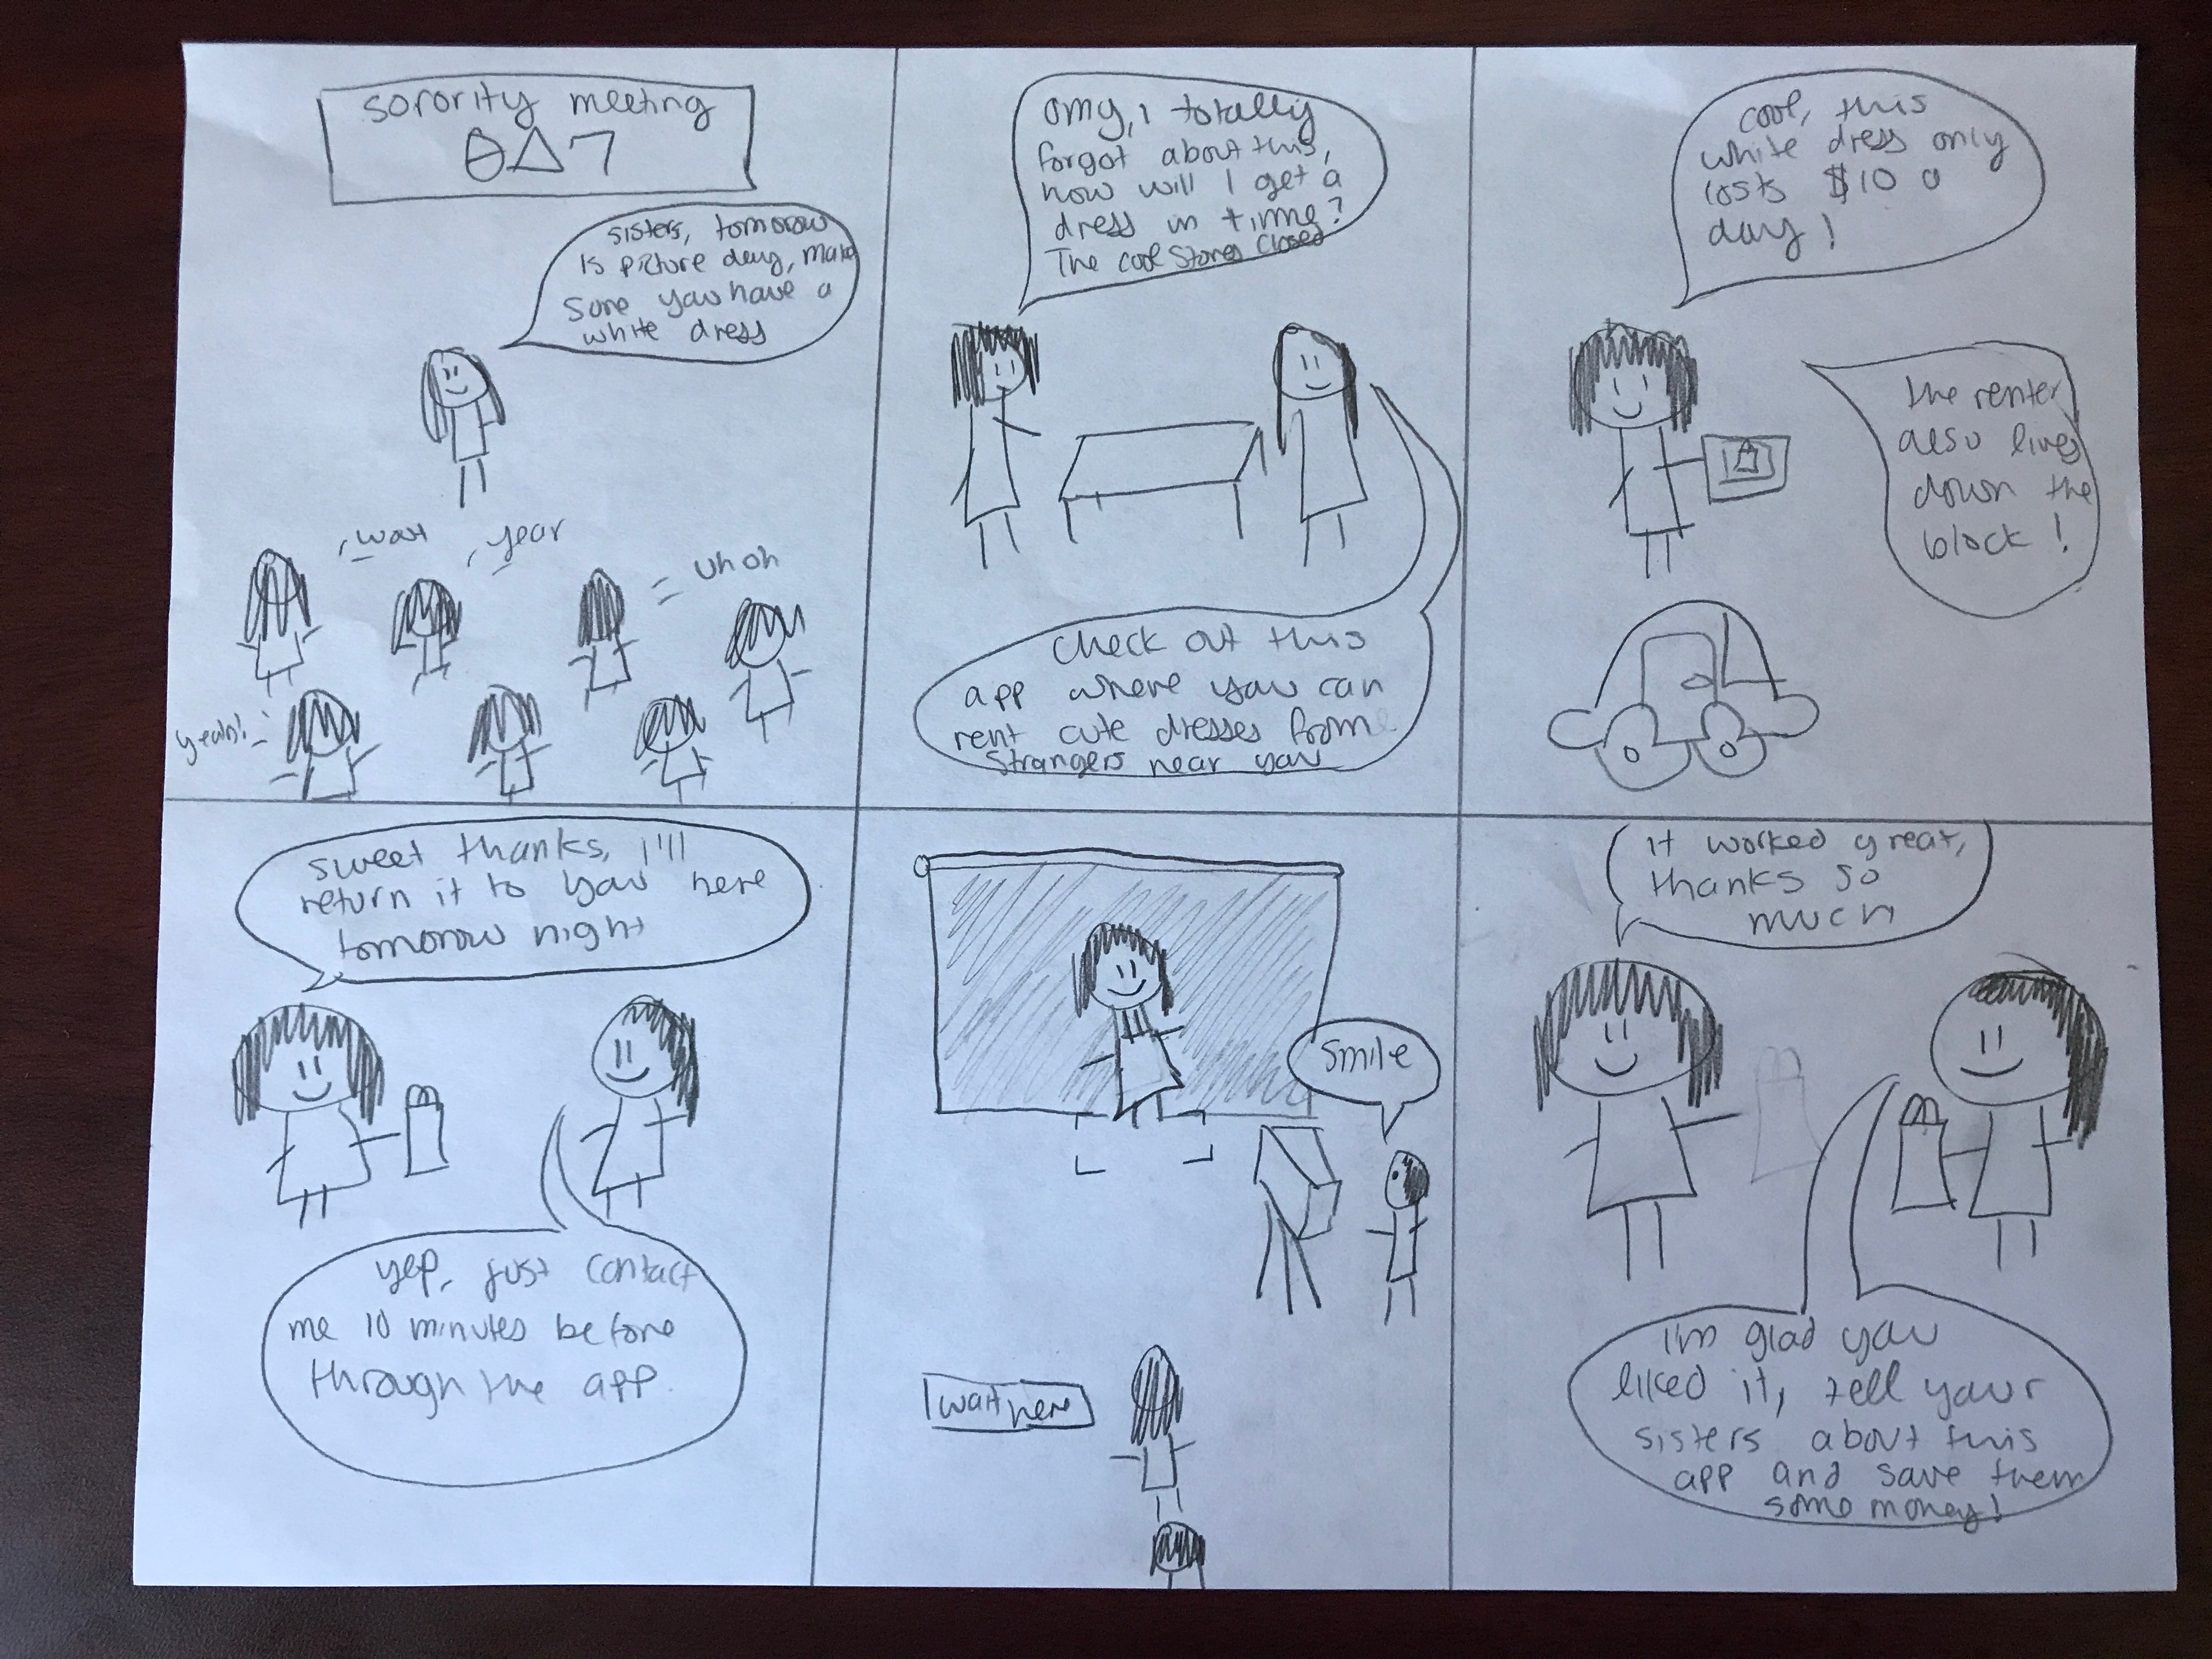 sorority meeting
ΘΔ
sisters, tomorrow
is picture day, make
sure you have a
white dress
wait
year
uh oh
yeah!
omg, i totally
forgot about this,
how will I get a
dress in time?
The cool stores closed
check out this
app where you can
rent cute dresses from
strangers near you
cool, this
white dress only
costs $10 a
day!
the renter
also lives
down the
block!
sweet thanks, I'll
return it to you here
tomorrow night
yep, just contact
me 10 minutes before
through the app.
smile
wait here
it worked great,
thanks so
much
I'm glad you
liked it, tell your
sisters about this
app and save them
some money!